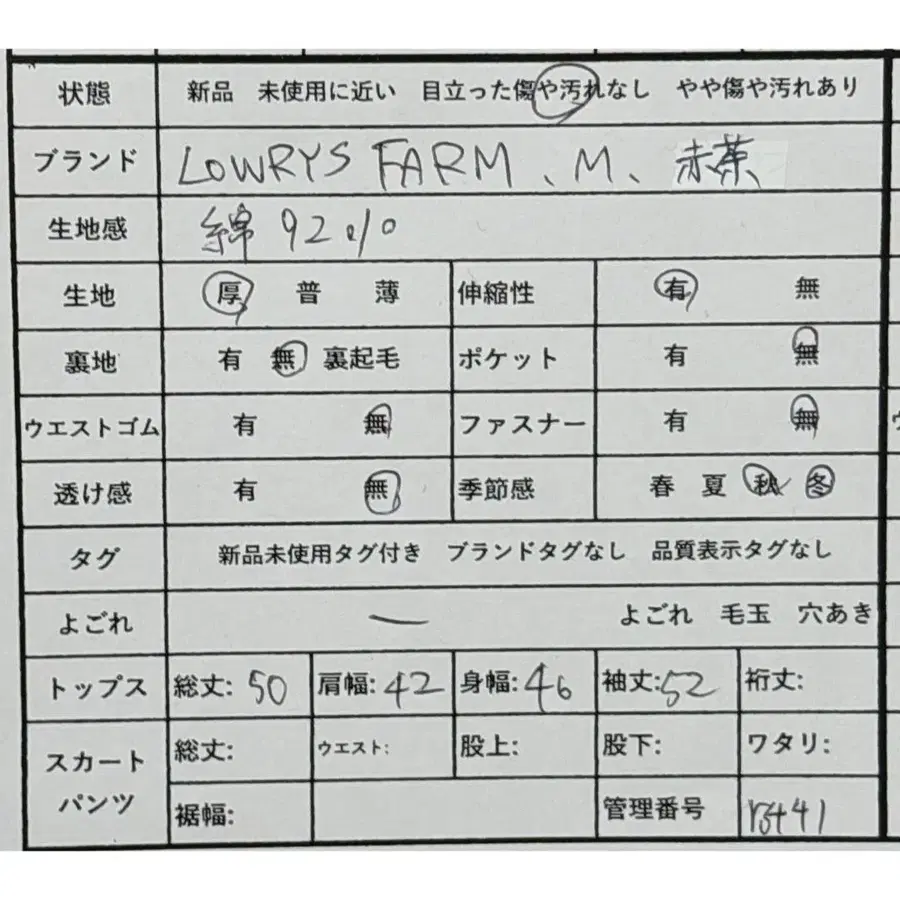 状態 新品 未使用に近い 目立った傷や汚れなし やや傷や汚れあり
ブランド LOWRYS FARM、M、赤茶
生地感 綿92%
生地 厚 普 薄 伸縮性 有 無
裏地 有 無 裏起毛 ポケット 有 無
ウエストゴム 有 無 ファスナー 有 無
透け感 有 無 季節感 春 夏 秋 冬
タグ 新品未使用タグ付き ブランドタグなし 品質表示タグなし
よごれ ー よごれ 毛玉 穴あき
トップス 総丈: 50 肩幅: 42 身幅: 46 袖丈: 52 裄丈:
スカート パンツ 総丈: ウエスト: 股上: 股下: ワタリ:
裾幅: 管理番号